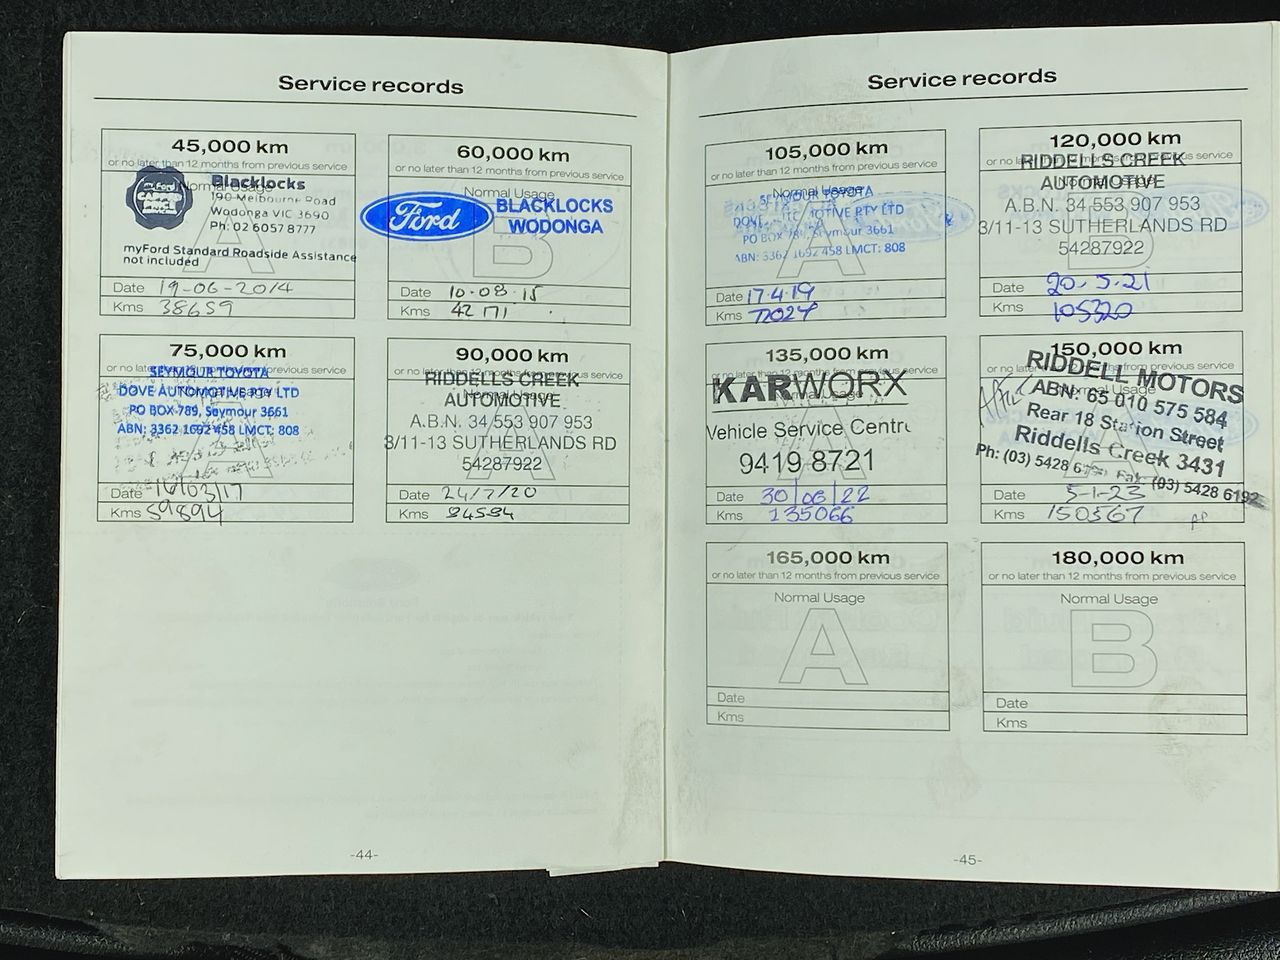 Service records
45,000 km
or no later than 12 months from previous service
Normal Usage
myFord
Blacklocks
190 Melbourne Road
Wodonga VIC 3690
Ph: 02 6057 8777
myFord Standard Roadside Assistance
not included
A
Date 19-06-2014
Kms 38659
60,000 km
or no later than 12 months from previous service
Normal Usage
Ford
BLACKLOCKS
WODONGA
B
Date 10·08·15
Kms 42171
75,000 km
or no later than 12 months from previous service
SEYMOUR TOYOTA
DOVE AUTOMOTIVE PTY LTD
PO BOX 789, Seymour 3661
ABN: 3362 1692 458 LMCT: 808
A
Date 16/03/17
Kms 59894
90,000 km
or no later than 12 months from previous service
RIDDELLS CREEK
AUTOMOTIVE
A.B.N. 34 553 907 953
3/11-13 SUTHERLANDS RD
54287922
A
Date 24/7/20
Kms 94594
-44-
Service records
105,000 km
or no later than 12 months from previous service
Normal Usage
SEYMOUR TOYOTA
DOVE AUTOMOTIVE PTY LTD
PO BOX 789, Seymour 3661
ABN: 3362 1692 458 LMCT: 808
A
Date 17.4.19
Kms 77027
120,000 km
or no later than 12 months from previous service
RIDDELLS CREEK
AUTOMOTIVE
A.B.N. 34 553 907 953
3/11-13 SUTHERLANDS RD
54287922
B
Date 20.5.21
Kms 105320
135,000 km
or no later than 12 months from previous service
Normal Usage
KARWORX
Vehicle Service Centre
9419 8721
A
Date 30/08/22
Kms 135066
150,000 km
or no later than 12 months from previous service
RIDDELL MOTORS
ABN: 65 010 575 584
Rear 18 Station Street
Riddells Creek 3431
Ph: (03) 5428 Fax (03) 5428 6192
A
Date 5-1-23
Kms 150567
165,000 km
or no later than 12 months from previous service
Normal Usage
A
Date
Kms
180,000 km
or no later than 12 months from previous service
Normal Usage
B
Date
Kms
-45-